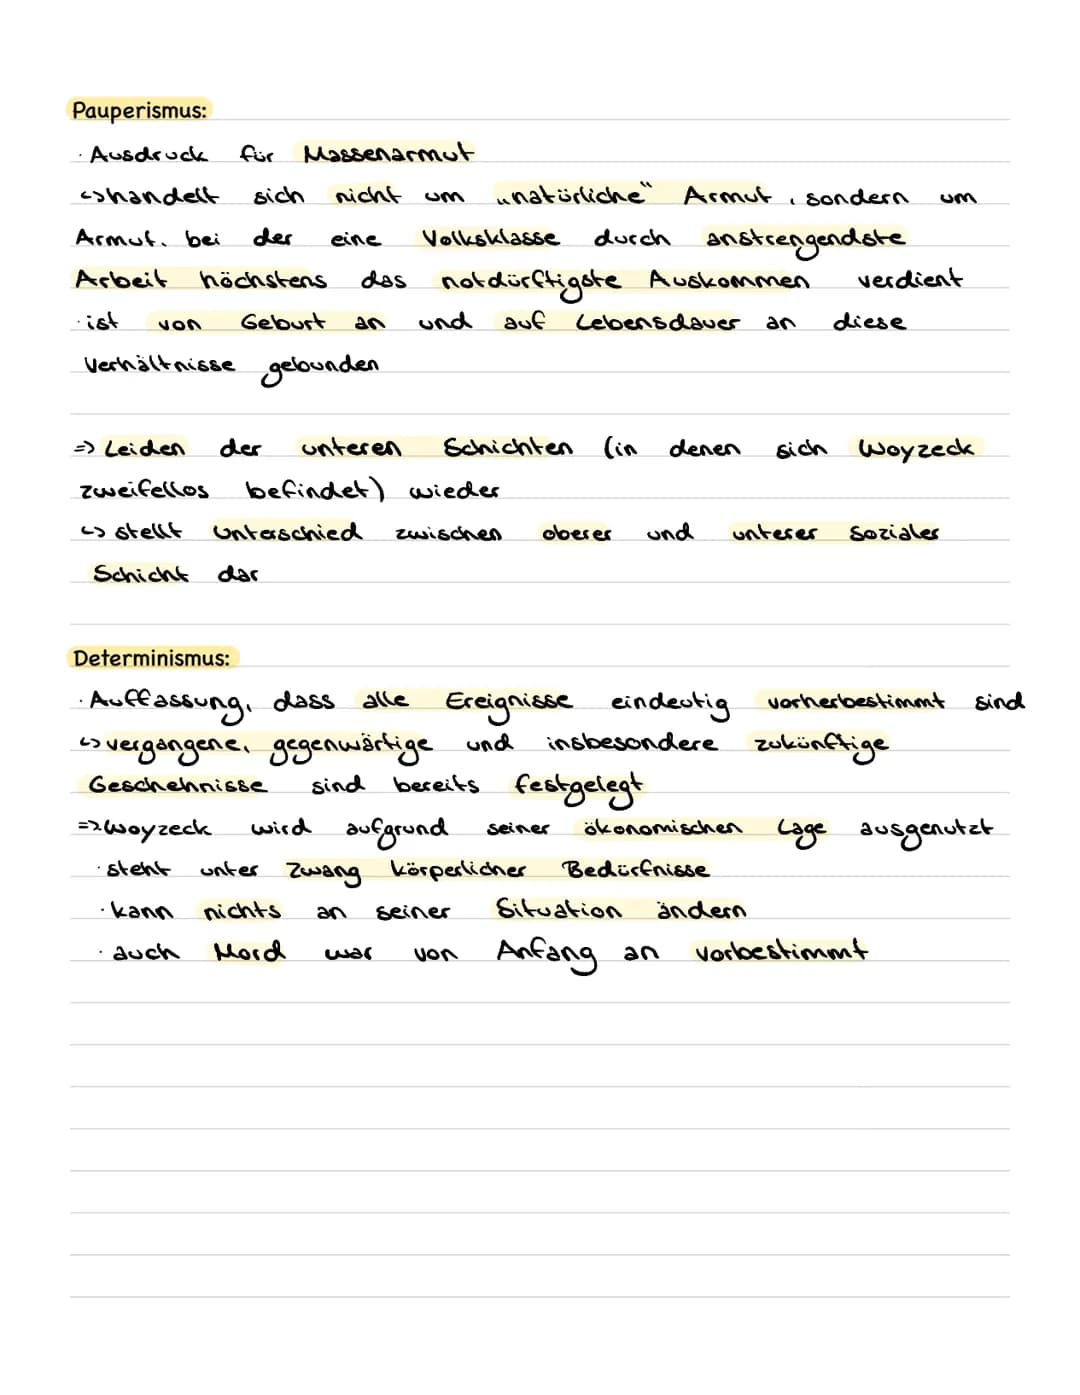 Pauperismus:
· Ausdruck für Massenarmut
↳ handelt sich nicht um „natürliche“ Armut, sondern um
Armut, bei der eine Volksklasse durch anstrengendste
Arbeit höchstens das notdürftigste Auskommen verdient
· ist von Geburt an und auf Lebensdauer an diese
Verhältnisse gebunden
=> Leiden der unteren Schichten (in denen sich Woyzeck
zweifellos befindet) wieder
↳ stellt Unterschied zwischen oberer und unterer Sozialer
Schicht dar
Determinismus:
· Auffassung, dass alle Ereignisse eindeutig vorherbestimmt sind
↳ vergangene, gegenwärtige und insbesondere zukünftige
Geschehnisse sind bereits festgelegt
=> Woyzeck wird aufgrund seiner ökonomischen Lage ausgenutzt
· steht unter Zwang körperlicher Bedürfnisse
· kann nichts an seiner Situation ändern
· auch Mord war von Anfang an vorbestimmt